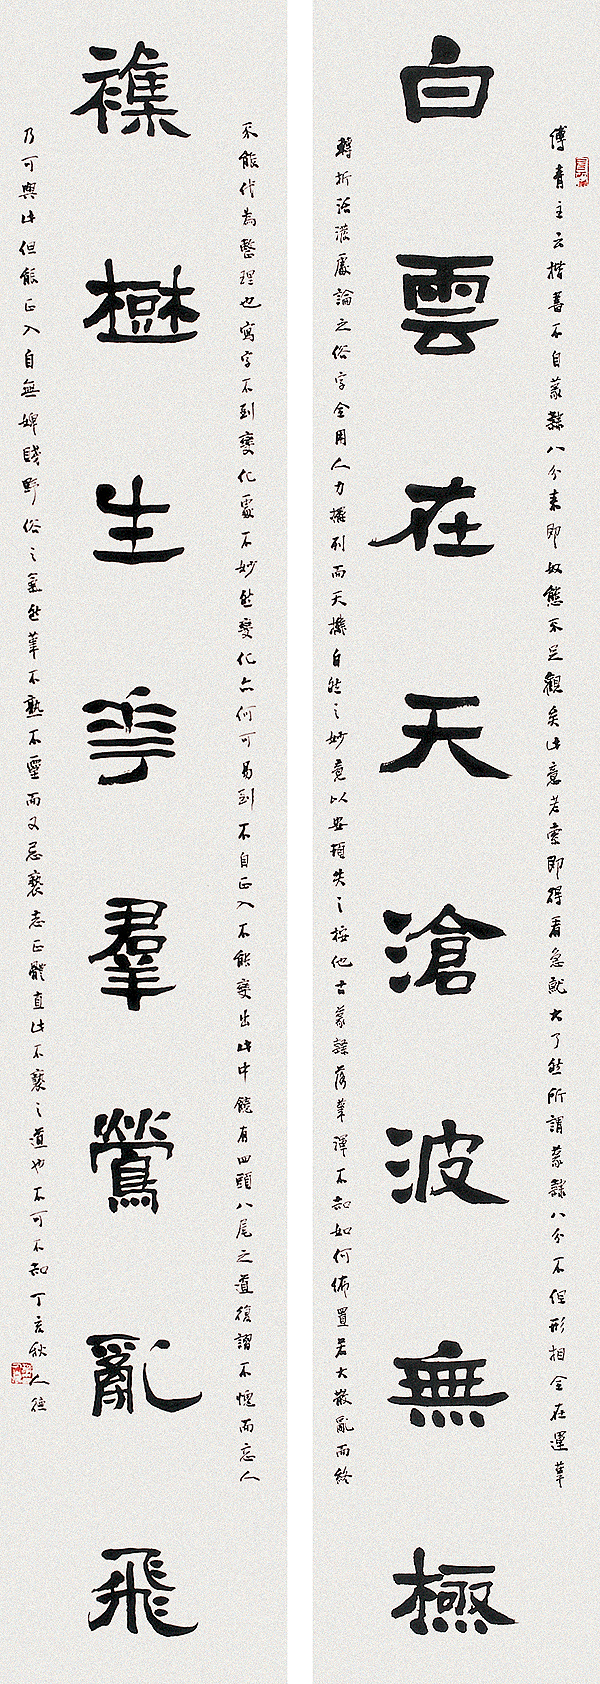 傅青主云楷書不自篆隸八分来即奴態不足觀矣此意老索即得看急就大了然所謂篆隸八分不但形相全在運筆
白雲在天滄波無極
轉折活潑處論之俗字全用人力擺列而天機自然之妙竟以安頓失之按他古篆隸落筆渾不知如何佈置若大散亂而終
不能代為整理也寫字不到變化處不妙然變化亦何可易到不自正入不能變出此中饒有四頭八尾之道復謂不愧而忘人
襍樹生華羣鶯亂飛
乃可與此但能正入自無婢賤野俗之氣然筆不熟不靈而又忌褻志正體直此不褻之道也不可不知丁亥秋人